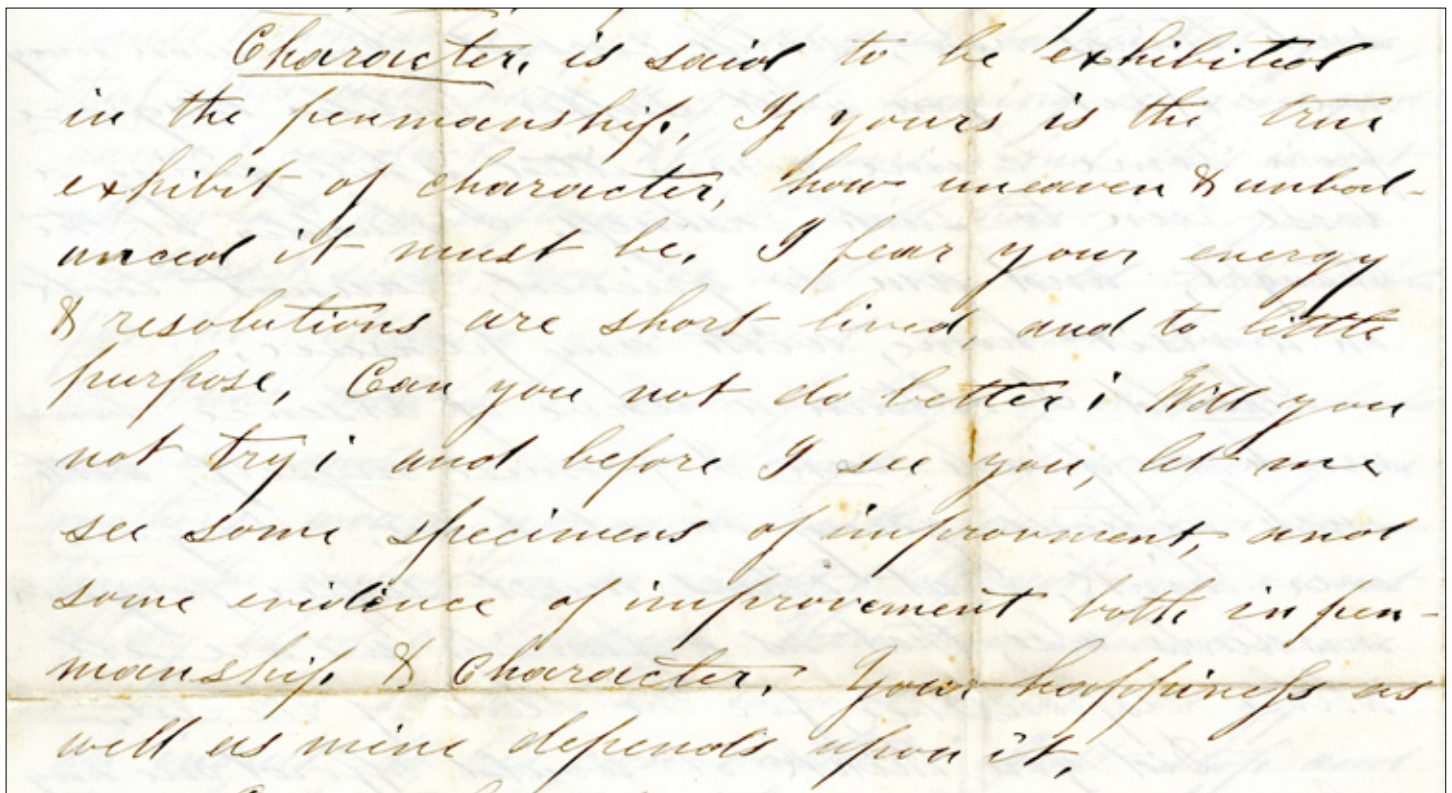 Character, is said to be exhibited
in the penmanship, If yours is the true
exhibit of character, how uneaven & unbal-
anced it must be. I fear your energy
& resolutions are short lived, and to little
purpose, Can you not do better; Will you
not try; and before I see you, let me
see some specimens of improvment, and
some evidence of improvement both in pen-
manship & character. Your happiness as
well as mine depends upon it,